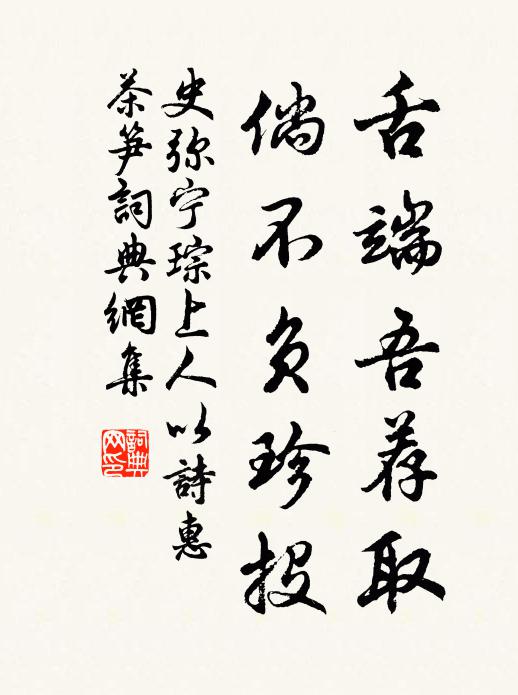 舌端吾荐取
倘不负珍投
史弥宁琮上人以詩惠
茶笋詞典網集
詞典网印